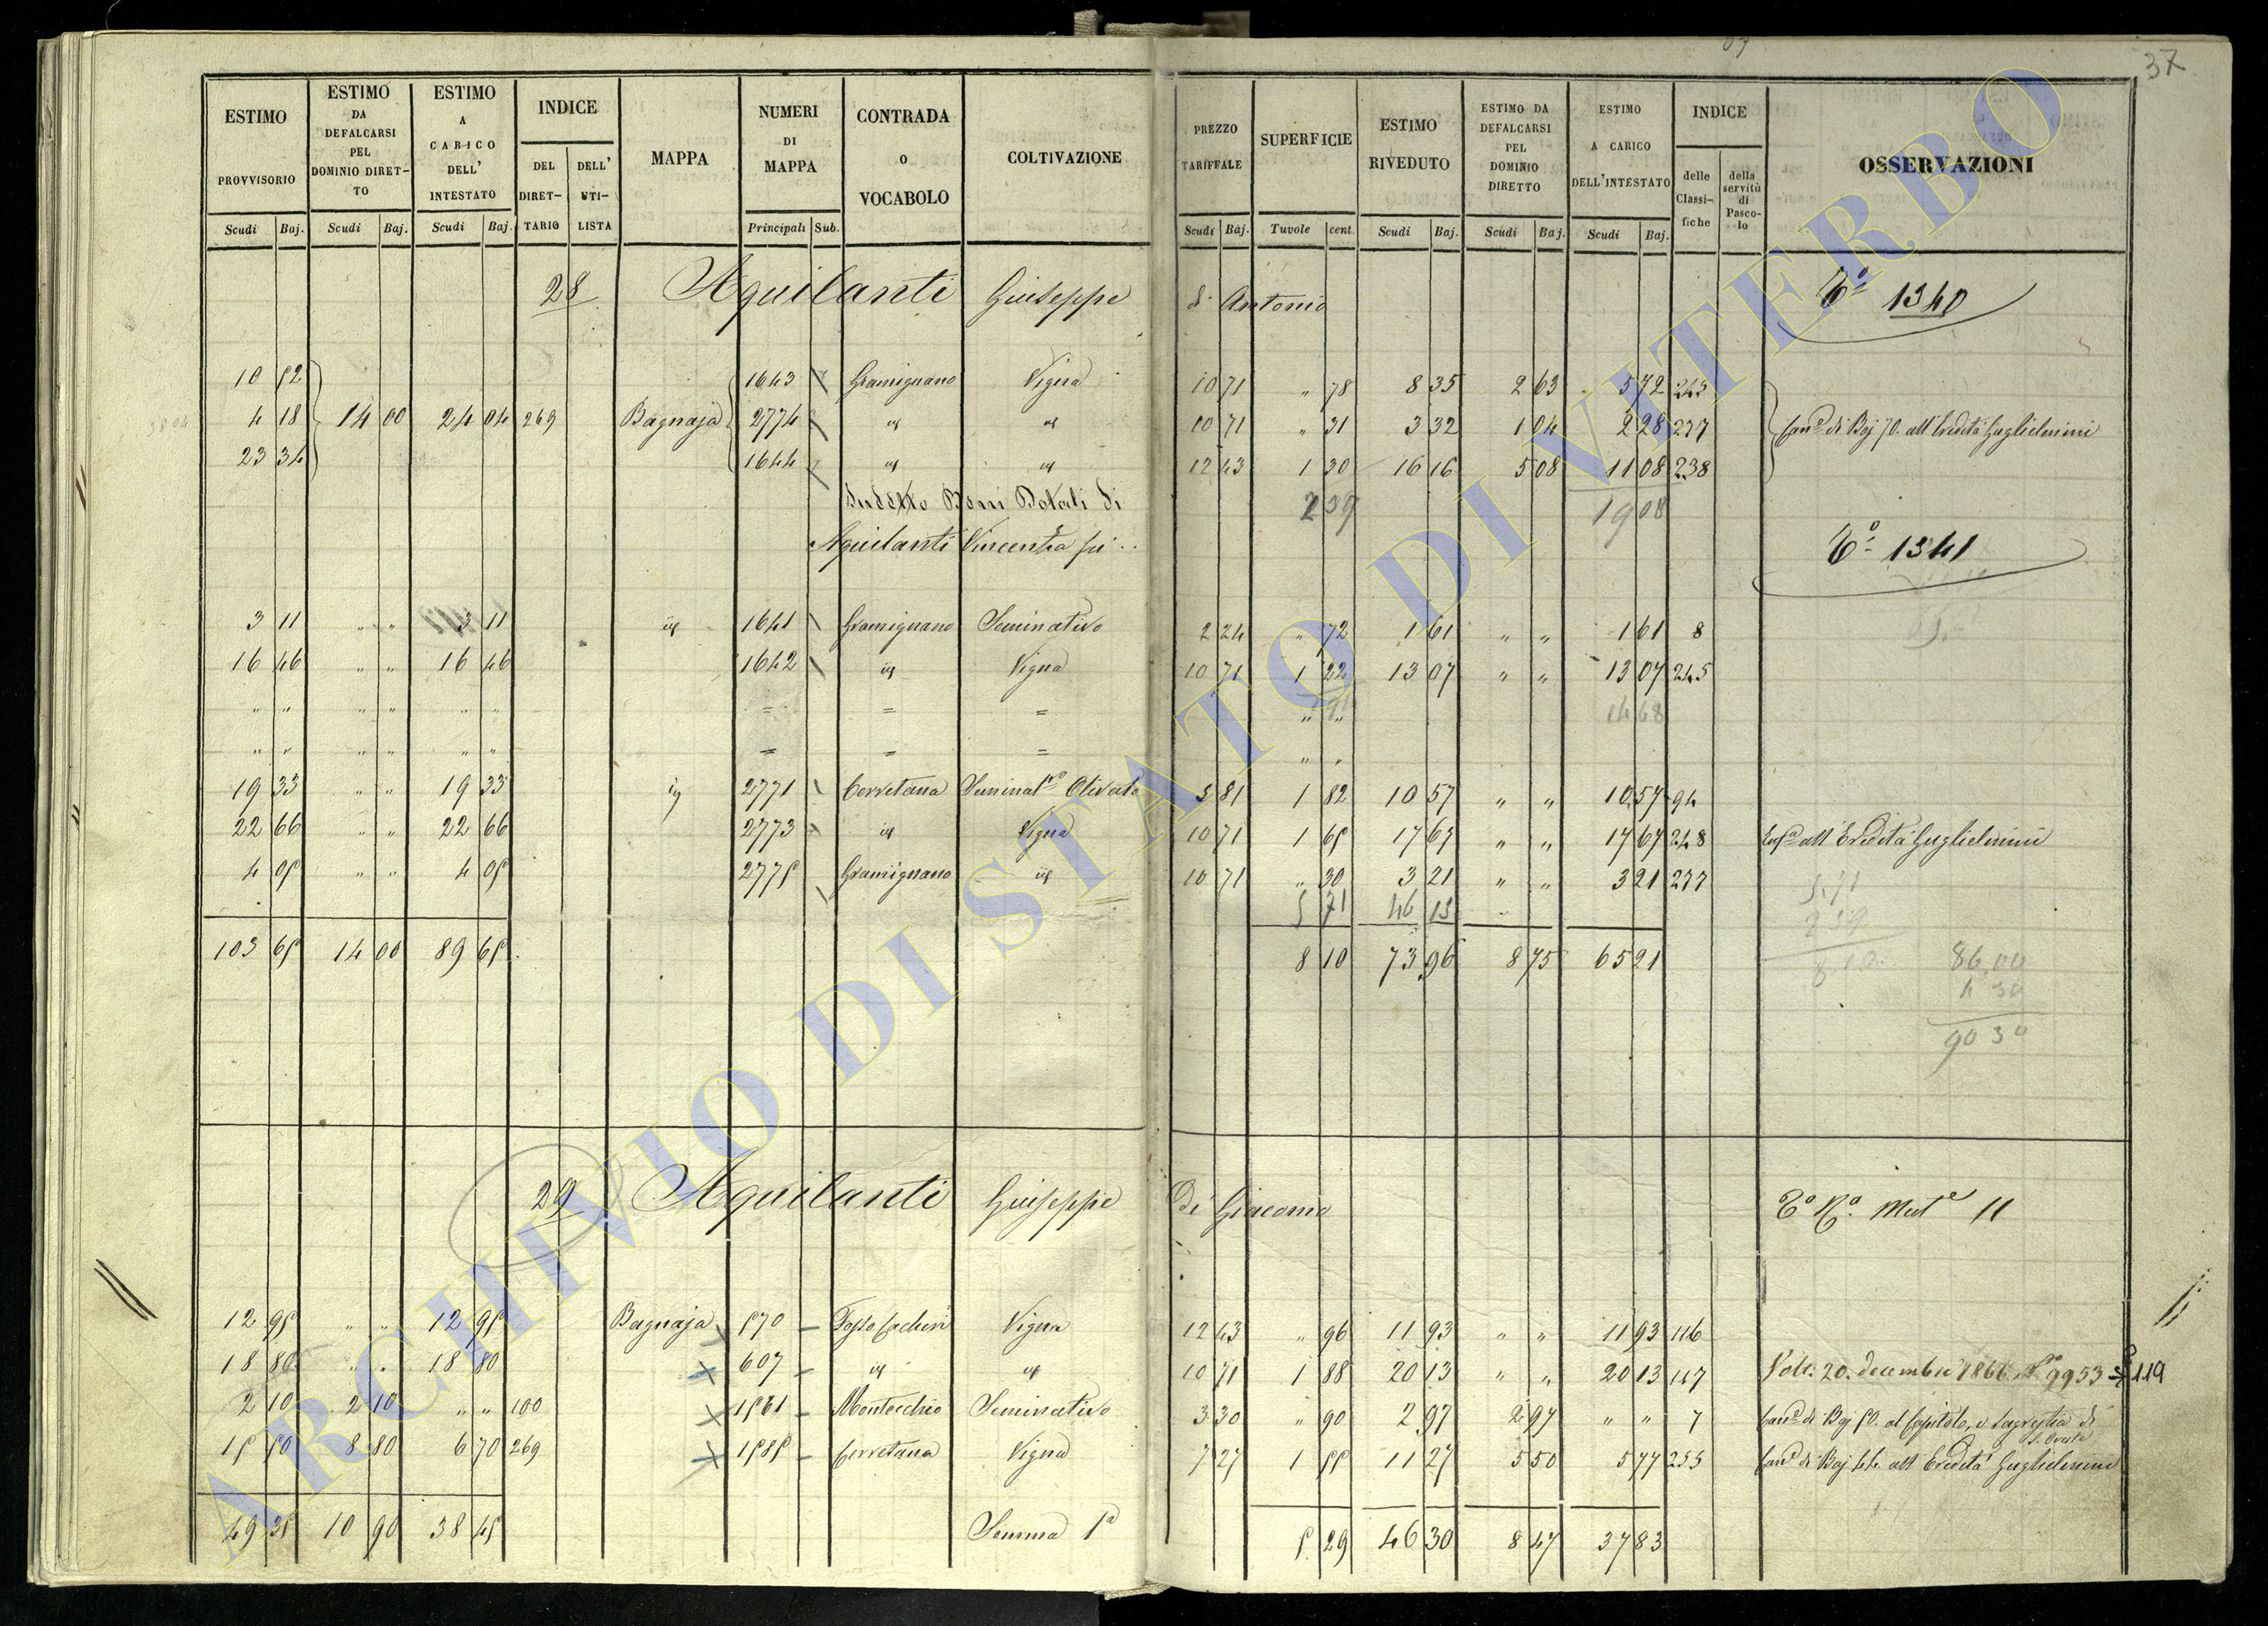 37
ESTIMO PROVVISORIO Scudi Baj. ESTIMO DA DEFALCARSI PEL DOMINIO DIRET-TO Scudi Baj. ESTIMO A CARICO DELL' INTESTATO Scudi Baj. INDICE DEL DIRET-TARIO DELL' UTI-LISTA MAPPA NUMERI DI MAPPA Principali Sub. CONTRADA O VOCABOLO COLTIVAZIONE PREZZO TARIFFALE Scudi Baj. SUPERFICIE Tavole cent. ESTIMO RIVEDUTO Scudi Baj. ESTIMO DA DEFALCARSI PEL DOMINIO DIRETTO Scudi Baj. ESTIMO A CARICO DELL'INTESTATO Scudi Baj. INDICE delle Classi-fiche della servitù di Pasco-lo OSSERVAZIONI
28 Aquilanti Giuseppe d' Antonio 1340
10 52 1643 Gramignano Vigna 10 71 " 78 8 35 2 63 5 72 245
4 18 14 00 24 04 269 Bagnaja 2774 " " 10 71 " 31 3 32 1 04 2 28 277 Can.e di Baj 70. all' Eredità Guglielmini
23 34 1644 " " 12 43 1 30 16 16 5 08 11 08 238
Sudetto Beni Dotali di 2 39 19 08
Aquilanti Vincenza fu .. 1341
3 11 " " 3 11 1641 Gramignano Seminativo 2 24 " 72 1 61 " " 1 61 8
16 46 " " 16 46 1642 Vigna 10 71 1 22 13 07 " " 13 07 245
" " " " " " = = = " " 14 68
" " " " " " = = = " "
19 33 " " 19 33 2771 Cerretana Seminat.vo Olivato 5 81 1 82 10 57 " " 10 57 94
22 66 " " 22 66 2773 Vigna 10 71 1 65 17 67 " " 17 67 248 all' Eredità Guglielmini
4 05 " " 4 05 2775 Gramignano 10 71 " 30 3 21 " " 3 21 277
5 71 46 13 5.71
2 39
103 65 14 00 89 65 8 10 73 96 8 75 65 21 8 10 86,00
4 30
90 30
29 Aquilanti Giuseppe Di Giacomo 11
12 95 " " 12 95 Bagnaja 570 Fosso Vigna 12 43 " 96 11 93 " " 11 93 116
18 80 " " 18 80 607 10 71 1 88 20 13 " " 20 13 117 20. decembre 9953 119
2 10 2 10 " " 100 1561 Montecchio Seminativo 3 30 " 90 2 97 2 97 " " 7 Can.e di Baj 50. al Capitolo, e Sagrestia di
15 50 8 80 6 70 269 1585 Cerretana Vigna 7 27 1 55 11 27 5 50 5 77 255 Can.e di Baj 44. all' Eredità Guglielmini
49 35 10 90 38 45 Somma P.a 5 29 46 30 8 47 37 83
ARCHIVIO DI STATO DI VITERBO